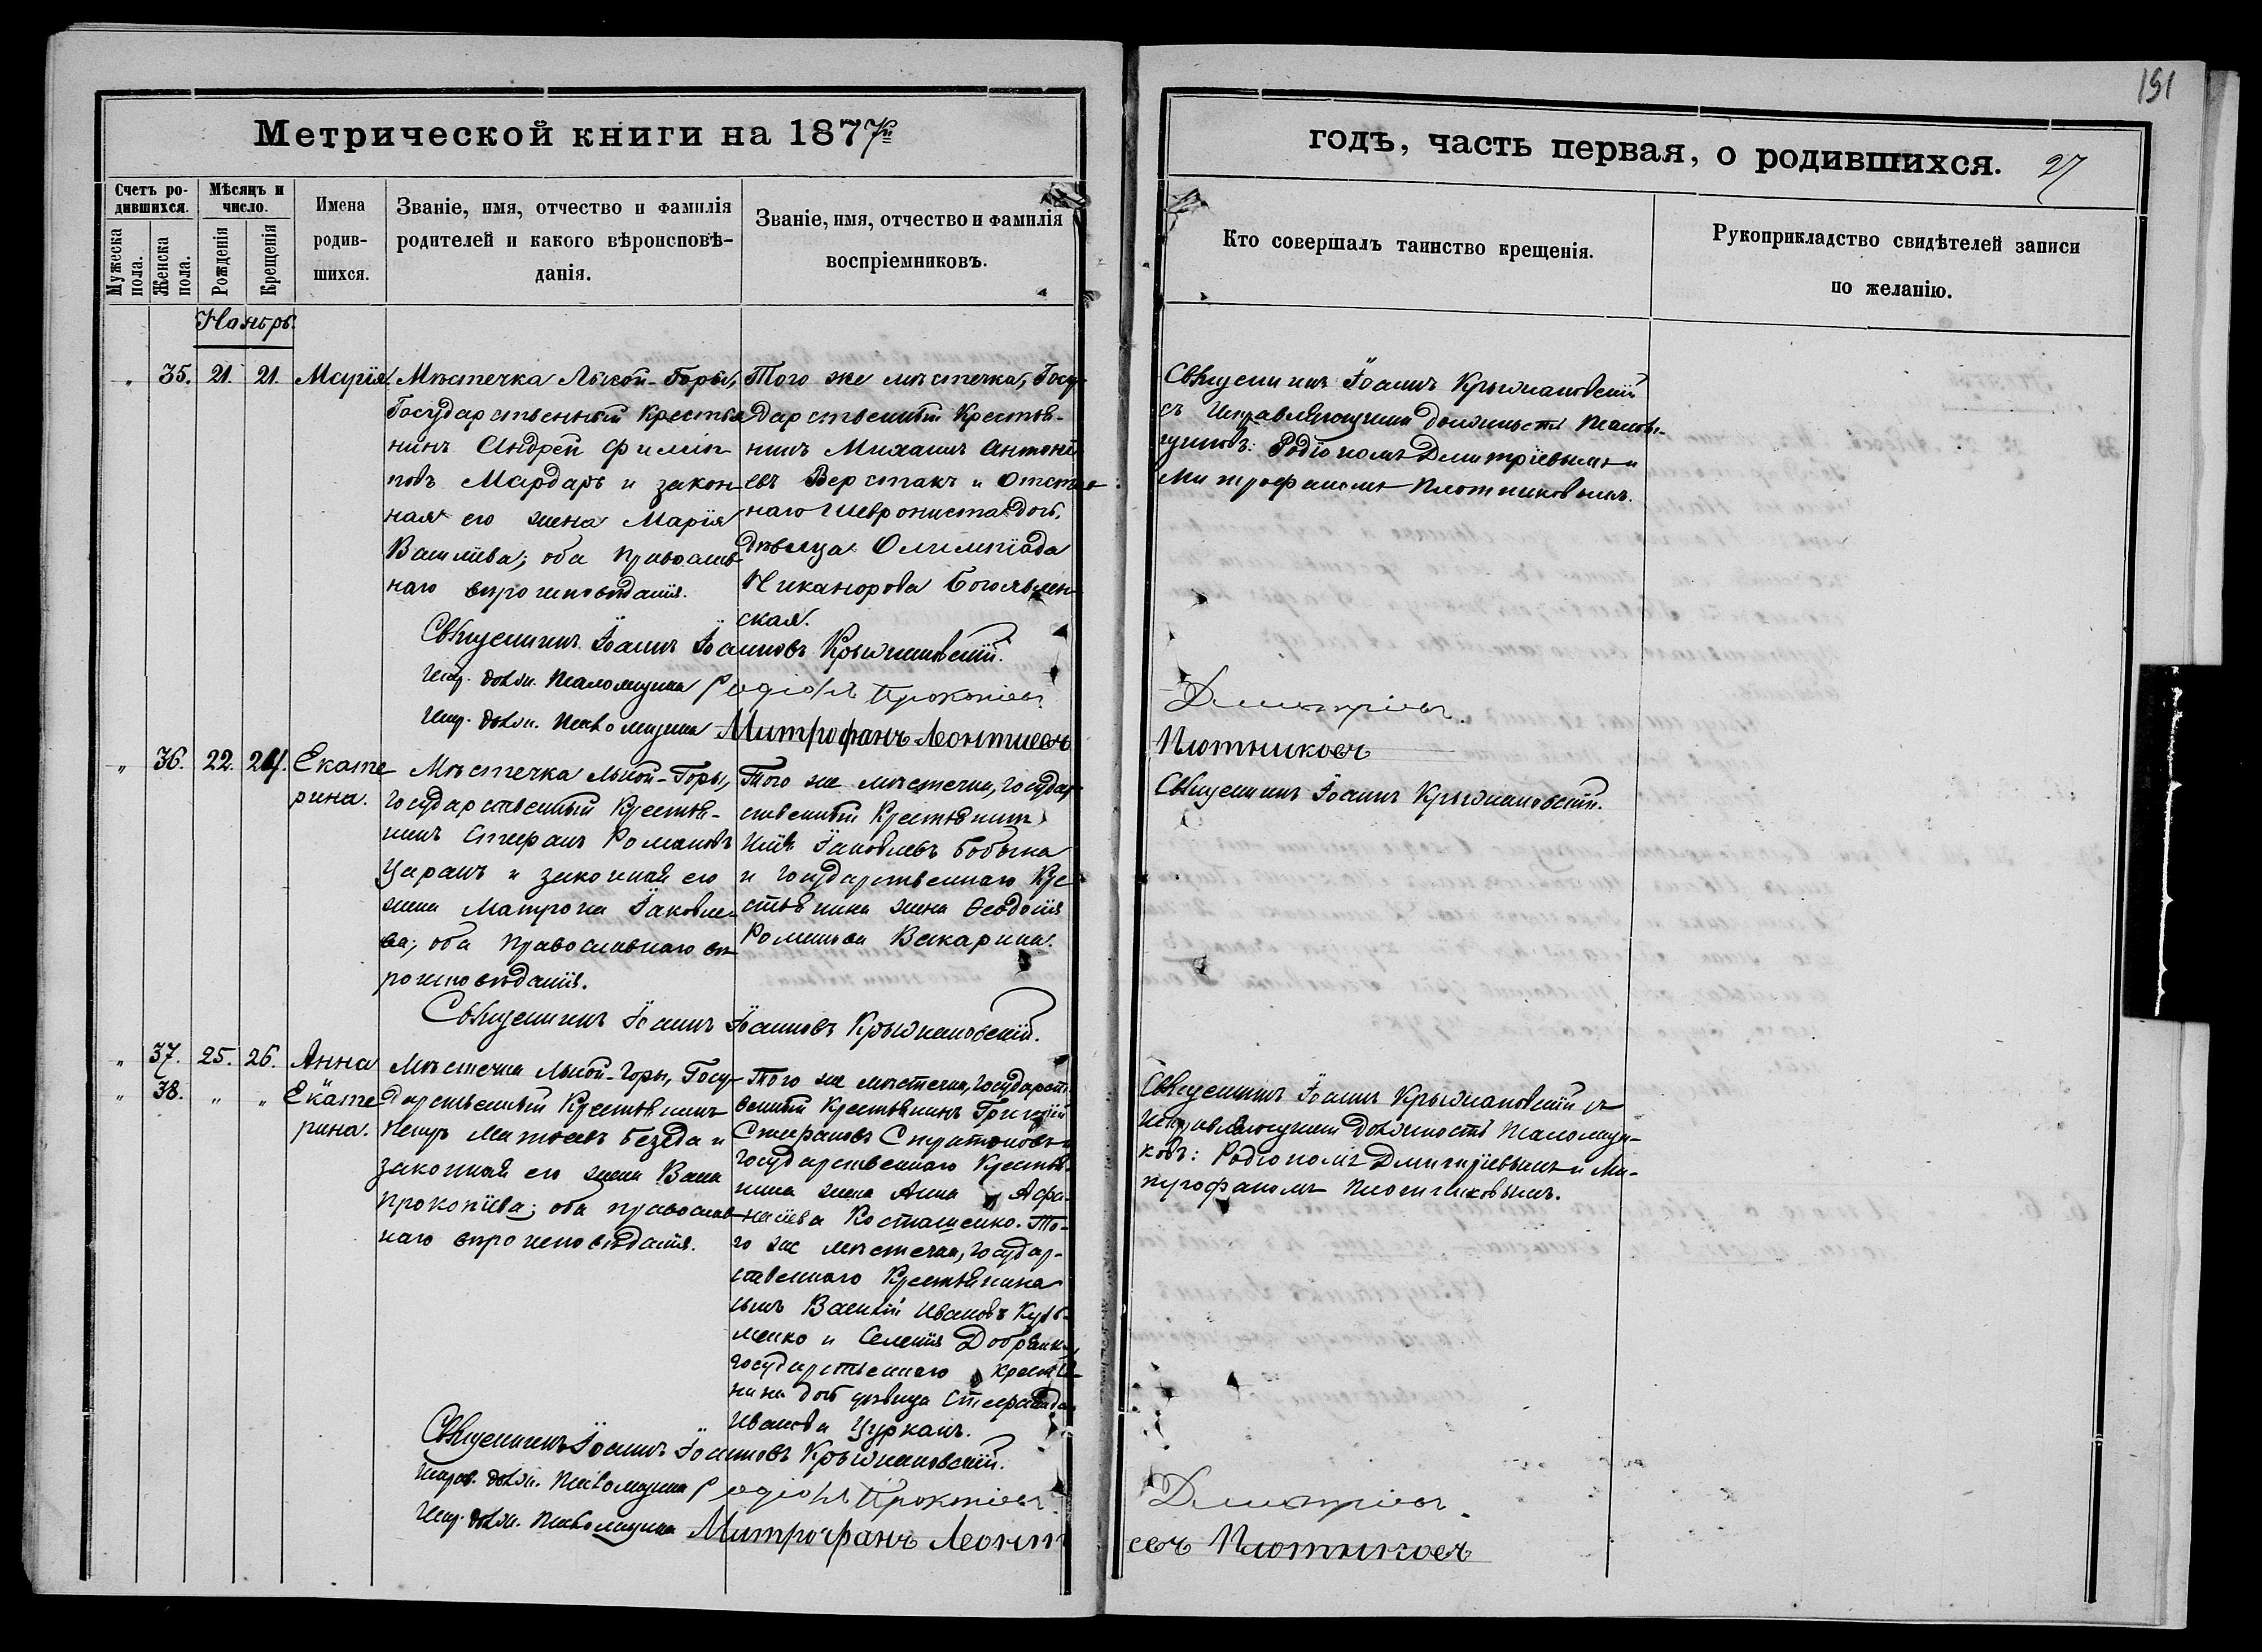 151
Метрической книги на 1877й
годъ, часть первая, о родившихся. 27
Счетъ родившихся.
Мужеска пола.
Женска пола.
Мѣсяцъ и число.
Рожденія
Крещенія
Имена родившихся.
Званіе, имя, отчество и фамилія родителей и какого вѣроисповѣданія.
Званіе, имя, отчество и фамилія воспріемниковъ.
Кто совершалъ таинство крещенія.
Рукоприкладство свидѣтелей записи по желанію.
Ноябрь.
" 35. 21. 21. Марія.
Мѣстечка Лысой-Горы,
Государственный Крестья
нинъ Андрей Филип
повъ Мардарь и закон
ная его жена Марія
Васильева; оба православ
наго вѣроисповѣданія.
Того же мѣстечка, Госу
дарственный Крестья-
нинъ Михаилъ Антоні
евъ Верстакъ и Отстав
наго Шеврониста дочь,
дѣвица Олимпіада
Никанорова Богоявлен
ская.
Священникъ Іоаннъ Крыжановскій
съ Исправляющими должность псалом-
щиковъ: Родіономъ Дмитріевымъ и
Митрофаномъ Плотниковымъ.
Священникъ Іоаннъ Іоанновъ Крыжановскій.
Испр. долж. Псаломщика Родіонъ Прокопіевъ
Дмитріевъ.
Испр. долж. Псаломщика Митрофанъ Леонтиевъ
Плотниковъ
" 36. 22. 24. Екате
рина.
Мѣстечка Лысой-Горы,
Государственный Крестья-
нинъ Стефанъ Романовъ
Царанъ и законная его
жена Матрона Іаковле-
ва; оба православнаго вѣ
роисповѣданія.
Того же мѣстечка, Государ
ственный Крестьянинъ
Іаковлевъ Бобына
и Государственнаго Кре
стьянина жена Ѳеодосія
Романова Вакарина.
Священникъ Іоаннъ Крыжановскій.
Священникъ Іоаннъ Іоанновъ Крыжановскій.
" 37. 25. 26. Анна
" 38. " " Екате
рина.
Мѣстечка Лысой-Горы, Госу-
дарственный Крестьянинъ
Петръ Матѳеевъ Безеда и
законная его жена Васса
Прокопіева; оба православ
наго вѣроисповѣданія.
Того же мѣстечка, Государст
венный Крестьянинъ Григорій
Стефановъ Спратоновъ и
Государственнаго Крестья
нина жена Анна Афа-
насіева Косташенко. То-
го же мѣстечка, Государ-
ственнаго Крестьянина
сынъ Василій Ивановъ Кузь-
менко и Селенія Добрянки,
Государственнаго крестья-
нина дочь дѣвица Стефанида
Иванова Цурканъ.
Священникъ Іоаннъ Крыжановскій съ
Исправляющими должность Псаломщи-
ковъ: Родіономъ Дмитріевымъ и Ми-
трофаномъ Плотниковымъ.
Священникъ Іоаннъ Іоанновъ Крыжановскій.
Исправ. долж. Псаломщика Родіонъ Прокопіевъ
Дмитріевъ
Испр. долж. Псаломщика Митрофанъ Леонти
евъ Плотниковъ